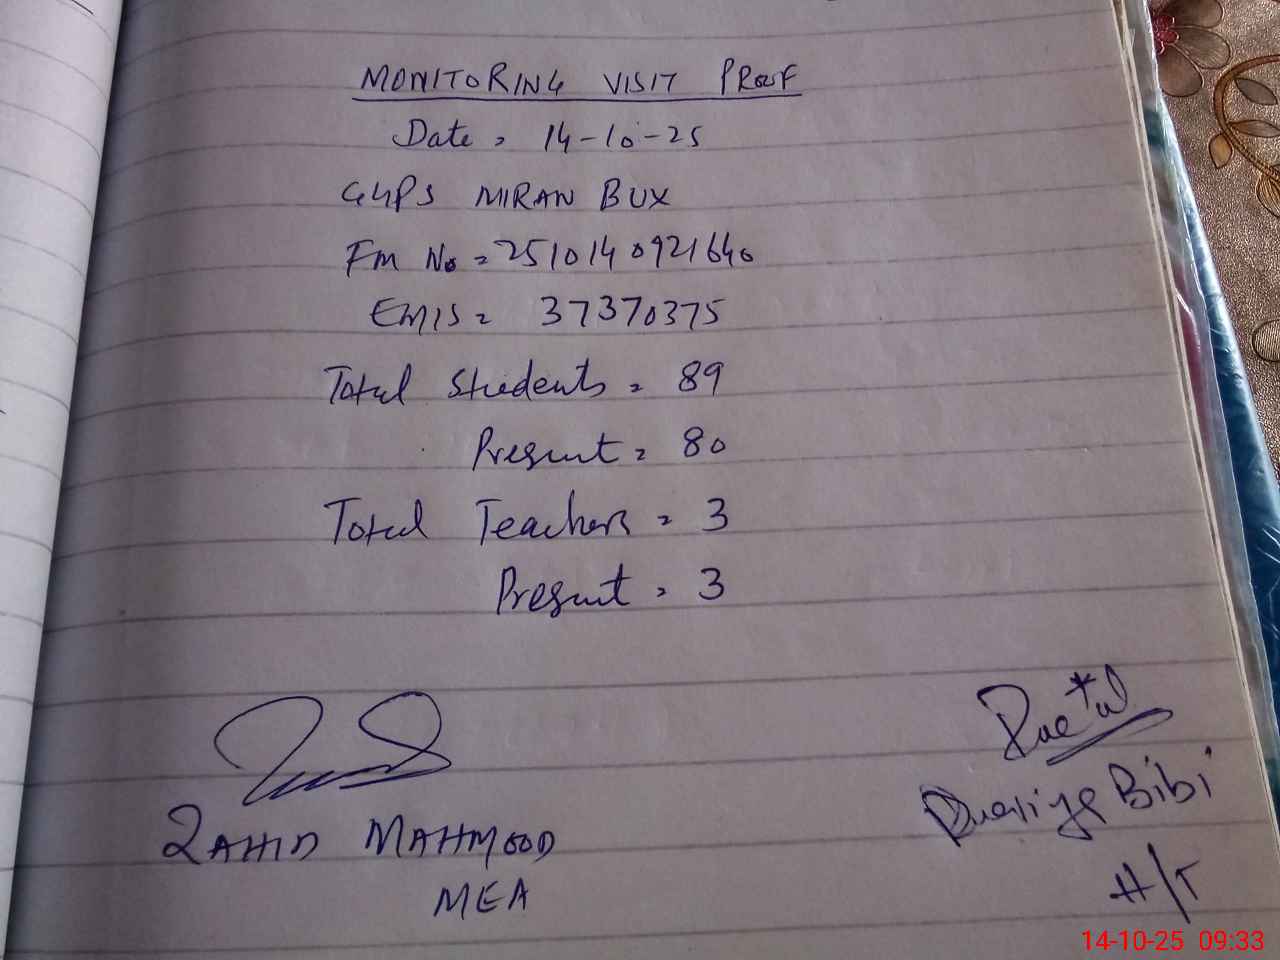 MONITORING VISIT PROOF
Date = 14-10-25
GHPS MIRAN BUX
Fm No = 2510140921640
EMIS = 37370375
Total Students = 89
Present = 80
Total Teachers = 3
Present = 3
ZAHID MAHMOOD
MEA
Bibi
H/T
14-10-25 09:33